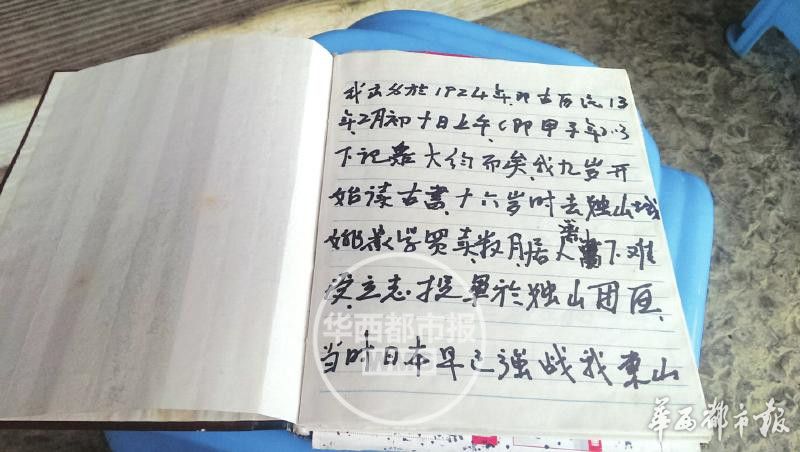 我出生於1924年即古历民13
年2月初十日上午(即甲子年)以
下记是大约而矣我九岁开
始读古書十六岁时去独山城
姚家学买卖数月居人篱下难
受立志投軍於独山团区
当时日本早已强战我東山
华西都市报
華西都市报